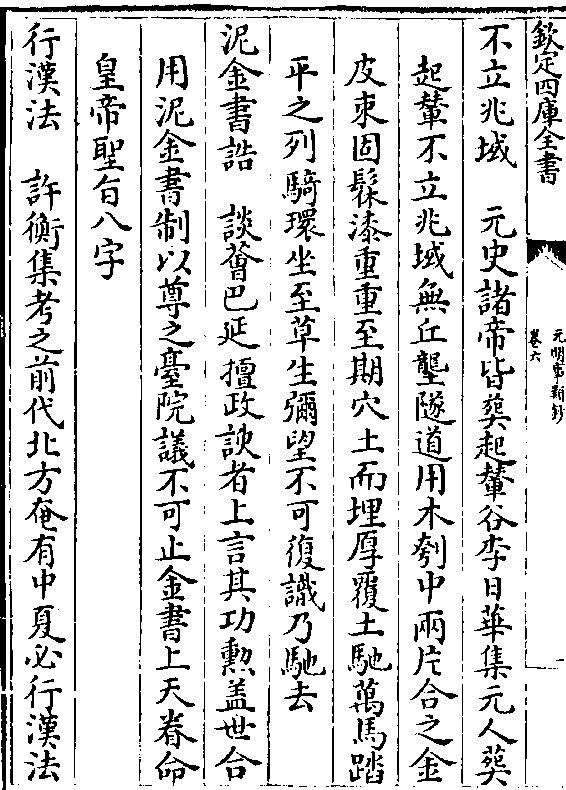 欽定四庫全書
元明事類鈔
卷六
不立兆域 元史諸帝皆葬起輦谷李日華集元人葬
起輦不立兆域無丘壟隧道用木刳中兩片合之金
皮束固髹漆重重至期穴土而埋厚覆土馳萬馬踏
平之列騎環坐至草生彌望不可復識乃馳去
泥金書誥 談薈巴延擅政諛者上言其功勲盖世合
用泥金書制以尊之臺院議不可止金書上天眷命
皇帝聖旨八字
行漢法 許衡集考之前代北方奄有中夏必行漢法